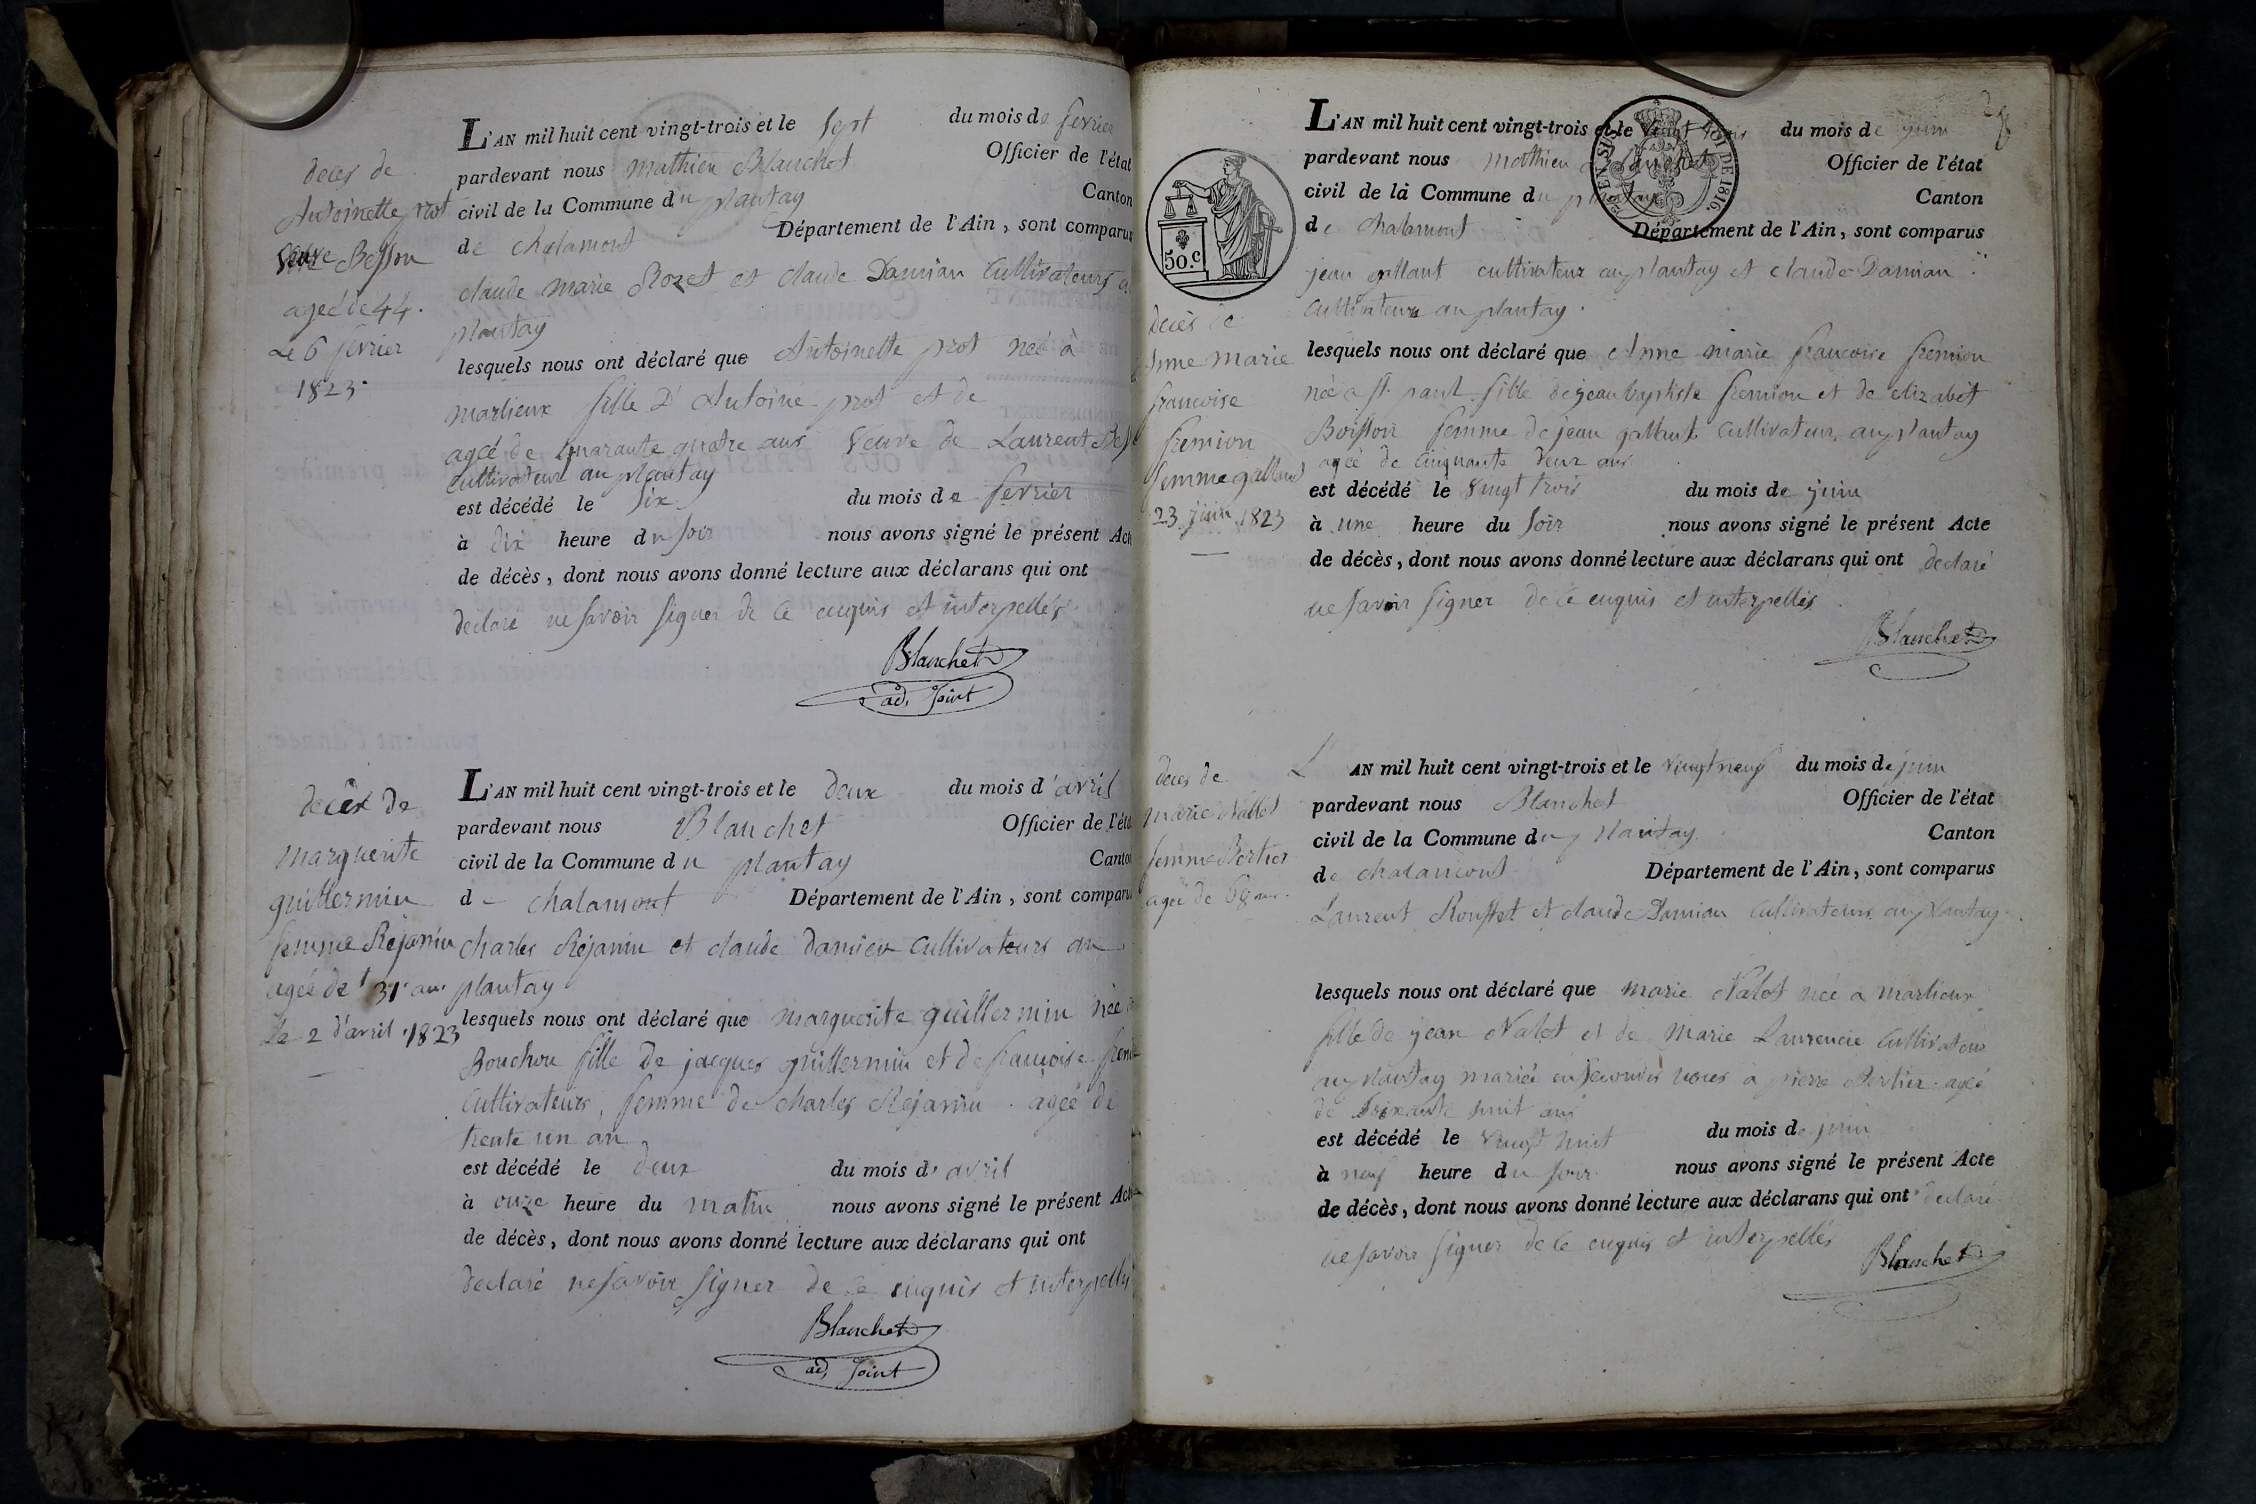 deces de
Antoinette prot
veuve Besson
agee de 44.
Le 6 fevrier
1823.
L'AN mil huit cent vingt-trois et le sept du mois de fevrier
pardevant nous mathieu Blanchet Officier de l'état
civil de la Commune du plantay Canton
de chalamont Département de l'Ain, sont comparus
claude marie Rozet et claude Damian Cultivateurs a
plantay
lesquels nous ont déclaré que Antoinette prot neé à
marlieux fille d'Antoine prot et de
ageé de quarante quatre ans veuve de Laurent Bess
cultivateur au plantay
est décédé le six du mois de fevrier
à dix heure du soir nous avons signé le présent Acte
de décès, dont nous avons donné lecture aux déclarans qui ont
declaré ne savoir signer de ce enquis et interpellés
Blanchet
adjoint
deces de
marguerite
guillermin
femme Rejanin
ageé de 31 an
Le 2 d'avril 1823
L'AN mil huit cent vingt-trois et le deux du mois d'avril
pardevant nous Blanchet Officier de l'état
civil de la Commune du plantay Canton
de chalamont Département de l'Ain, sont comparus
charles Rejanin et claude damien cultivateurs au
plantay
lesquels nous ont déclaré que marguerite guillermin neé
Bouchou fille de jacques guillermin et de françoise
cultivateurs, femme de charles Rejanin ageé de
trente un an
est décédé le deux du mois d'avril
à onze heure du matin nous avons signé le présent Acte
de décès, dont nous avons donné lecture aux déclarans qui ont
declaré ne savoir signer de ce enquis et interpellés
Blanchet
adjoint
50.c
LOI DE 1816.
L'AN mil huit cent vingt-trois et le vingt trois du mois de juin
pardevant nous mathieu Blanchet Officier de l'état
civil de la Commune du plantay Canton
de chalamont Département de l'Ain, sont comparus
jean gallant cultivateur au plantay et claude Damian
cultivateur au plantay.
deces de
Anne marie
francoise
fremion
femme galland
23 juin 1823
lesquels nous ont déclaré que Anne marie francoise fremion
née a st. paul fille de jean baptiste fremion et de elizabet
Boisson femme de jean gallant cultivateur au plantay
ageé de cinquante deux ans
est décédé le vingt trois du mois de juin
à une heure du soir nous avons signé le présent Acte
de décès, dont nous avons donné lecture aux déclarans qui ont declaré
ne savoir signer de ce enquis et interpellés
Blanchet
deces de
marie Nallet
femme Bertier
ageé de 68 an
L'AN mil huit cent vingt-trois et le vingt neuf du mois de juin
pardevant nous Blanchet Officier de l'état
civil de la Commune du plantay Canton
de chalamont Département de l'Ain, sont comparus
Laurent Rousset et claude Damian cultivateurs au plantay
lesquels nous ont déclaré que marie Nalet neé a marlieux
fille de jean Nalet et de marie Laurencie cultivateur
au plantay marieé en secondes noces a pierre Bertier ageé
de soixante huit ans
est décédé le vingt huit du mois de juin
à neuf heure du soir nous avons signé le présent Acte
de décès, dont nous avons donné lecture aux déclarans qui ont declaré
ne savoir signer de ce enquis et interpellés
Blanchet